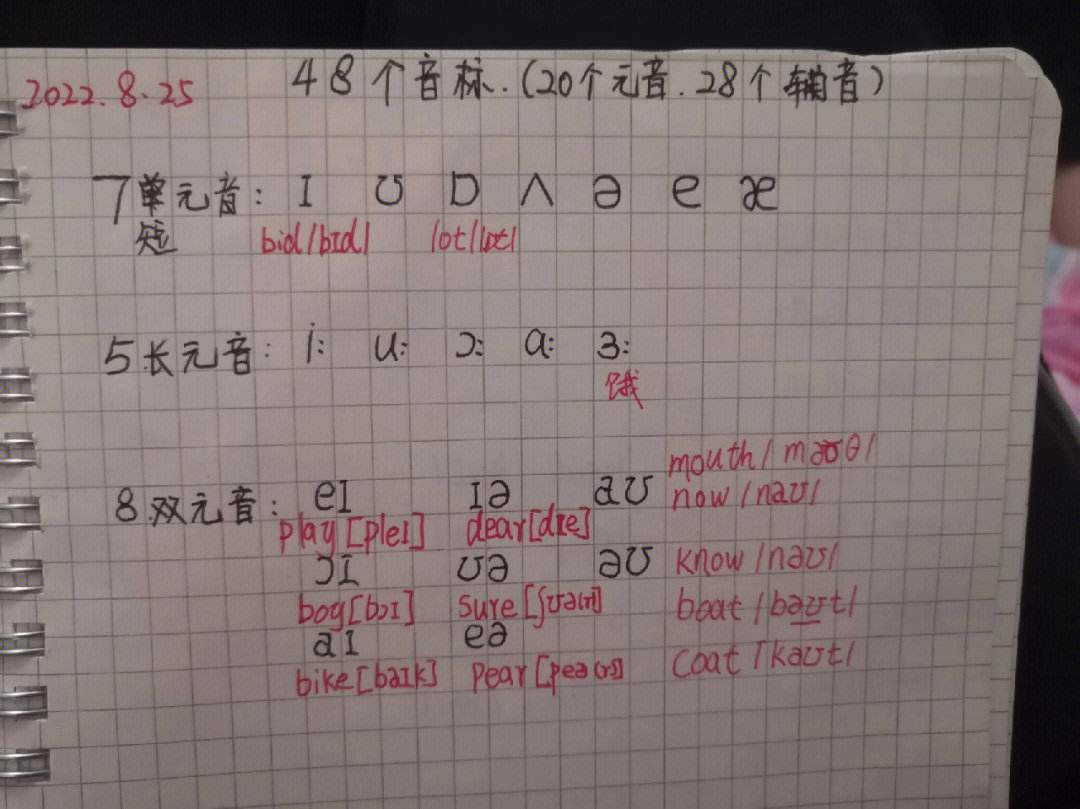 2022.8.25 48个音标.(20个元音.28个辅音)
7单元音: ɪ ʊ ɒ ʌ ə e æ
短 bid/bɪd/ lot/lɒt/
5.长元音: i: u: ɔ: ɑ: ɜ:
饿
mouth/maʊθ/
8.双元音: eɪ ɪə aʊ now/naʊ/
play[pleɪ] dear[dɪe]
ɔɪ ʊə əʊ know/nəʊ/
boy[bɔɪ] sure[ʃʊə(r)] boat/bəʊt/
aɪ eə
bike[baɪk] pear[peə(r)] coat/kəʊt/